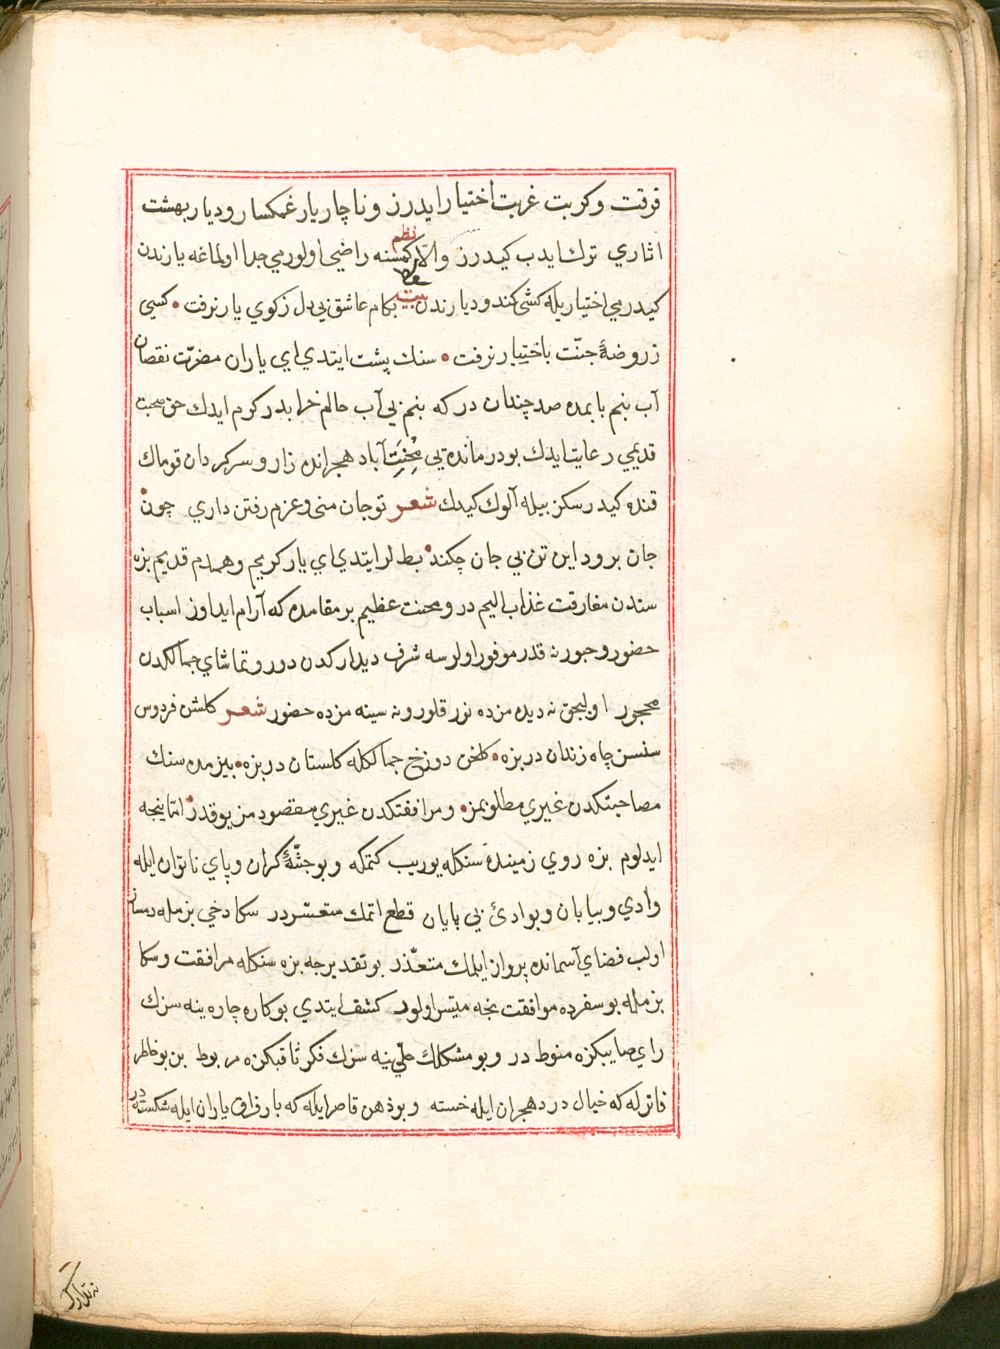 فرقت وكربت غربت اختيار ايدرز وناچار يار غمكسار وديار بهشت
اثاري ترك ايدب كيدرز والّا كمسنه راضي اولورمي جدا اولماغه يارندن
نظم
كيدرمي اختياريله كشي كندو ديارندن بيت بكام عاشق بي دل زكوي يار نرفت • كسي
زروضۀ جنّت باختيار نرفت • سنك پشت ايتدي اي ياران مضرّت نقصان
آب بنم بابمده صد چندان در كه بنم بي آب حالم خرابدر كرم ايدك حق صحبت
قديمي رعايت ايدك بو درمانده يي محنت آباد هجرانده زار وسركردان قومك
قنده كيدرسكز بيله آلوك كيدك شعر تو جان مني وعزم رفتن داري چون
جان برود اين تن بي جان چكند • بطلر ايتدي اي يار كريم وهمدم قديم بزه
سندن مفارقت عذاب اليم در ومحنت عظيم بر مقامده كه آرام ايداوز اسباب
حضور وحبور نه قدر موفور اولورسه شرف ديداركدن دور وتماشاي جمالكدن
مهجور اوليجق نه ديده مزده نور قلور ونه سينه مزده حضور شعر كلشن فردوس
سنسن چاه زندان در بزه • كلخن دوزخ جمالكله كلستان در بزه • بيزمده سنك
مصاحبتكدن غيري مطلوبمز • ومرافقتكدن غيري مقصودمز يوقدر • امّا نيجه
ايدلوم بزه روي زمينده سنكله يوريب كتمكه وبو جثّۀ كران وپاي ناتوان ايله
وادي وبيابان وبوادئ بي پايان قطع اتمك متعسّردر سكا دخي بزمله دمساز
اولب فضاي آسمانده پرواز ايلمك متعذّر بو تقديرجه بزه سنكله مرافقت وسكا
بزمله بو سفرده موافقت نجه ميسّر اولور كشف ايتدي بو كاره چاره ينه سزك
راي صايبكزه منوط در وبو مشكلك حلّي ينه سزك فكر ثاقبكزه مربوط بن بو خاطر
فاترله كه خيال درد هجران ايله خسته وبو ذهن قاصرايله كه بار فراق ياران ايله شكسته در
نه تدارك